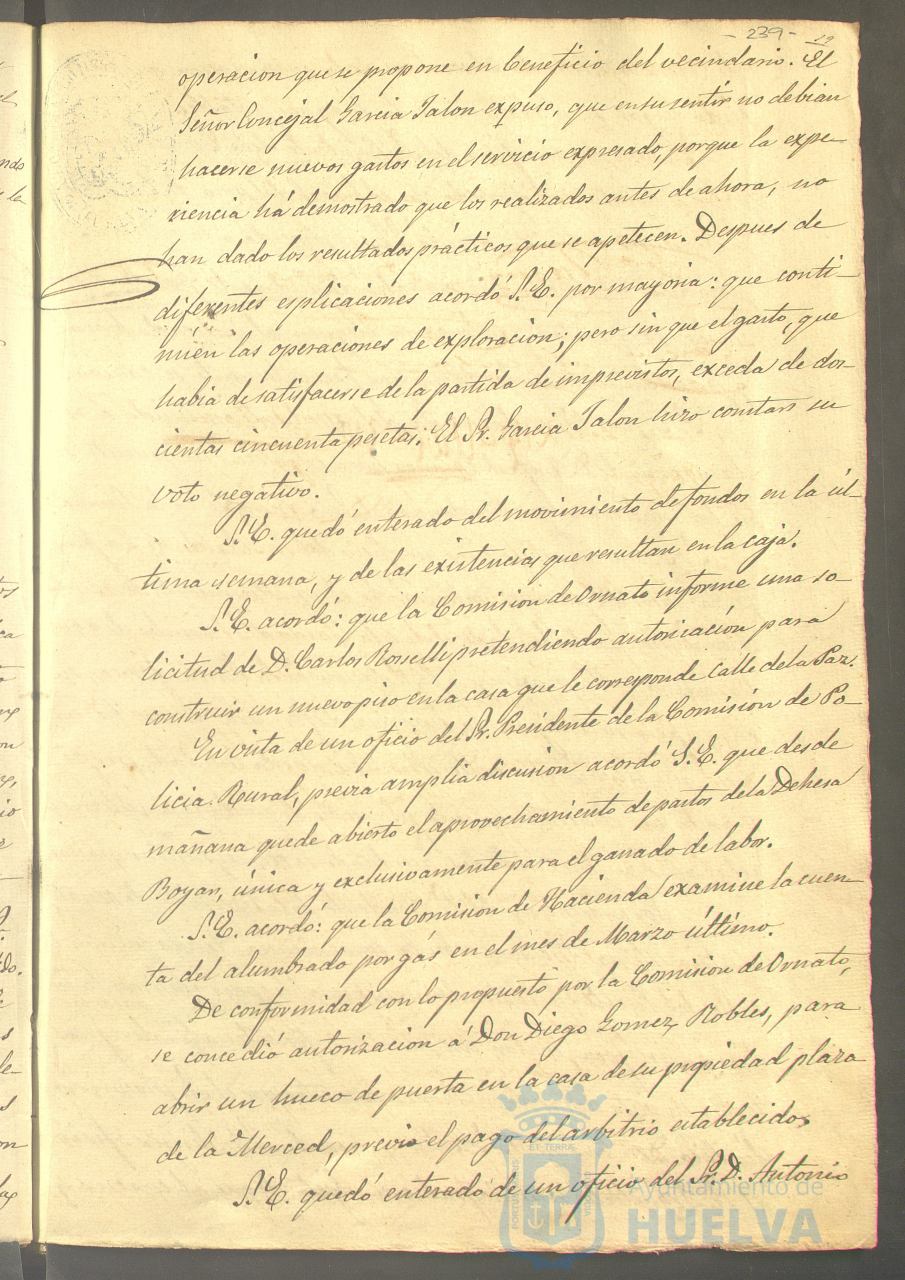 - 239 -
12
operacion que se propone en beneficio del vecindario. El
Señor Concejal Garcia Jalon expuso, que en su sentir no debian
hacerse nuevos gastos en el servicio expresado, porque la expe-
riencia há demostrado que los realizados antes de ahora, no
han dado los resultados prácticos que se apetecen. Depues de
diferentes esplicaciones acordó S.E. por mayoria: que conti-
núen las operaciones de exploracion; pero sin que el gasto, que
habia de satisfacerse de la partida de imprevistos, exceda de dos-
cientas cincuenta pesetas. El Sr. Garcia Jalon hizo constar su
voto negativo.
S.E. quedó enterado del movimiento de fondos en la úl-
tima semana, y de las existencias que resultan en la caja.
S.E. acordó: que la Comision de Ornato informe una so-
licitud de D. Carlos Rosselli pretendiendo autoricación para
construir un nuevo piso en la casa que le corresponde Calle de la Paz.
En vista de un oficio del Sr. Presidente de la Comisión de Po-
licia Rural, previa amplia discusion acordó S.E. que desde
mañana quede abierto el aprovechamiento de pastos de la Dehesa
Boyar, única y exclusivamente para el ganado de labor.
S.E. acordó: que la Comision de Hacienda examine la cuen-
ta del alumbrado por gás en el mes de Marzo último.
De conformidad con lo propuesto por la Comision de Ornato,
se concedió autorizacion á Don Diego Gomez Robles, para
abrir un hueco de puerta en la casa de su propiedad plaza
de la Merced, previo el pago del arbitrio establecido.
S.E. quedó enterado de un oficio del Sr. D. Antonio
Ayuntamiento de
HUELVA